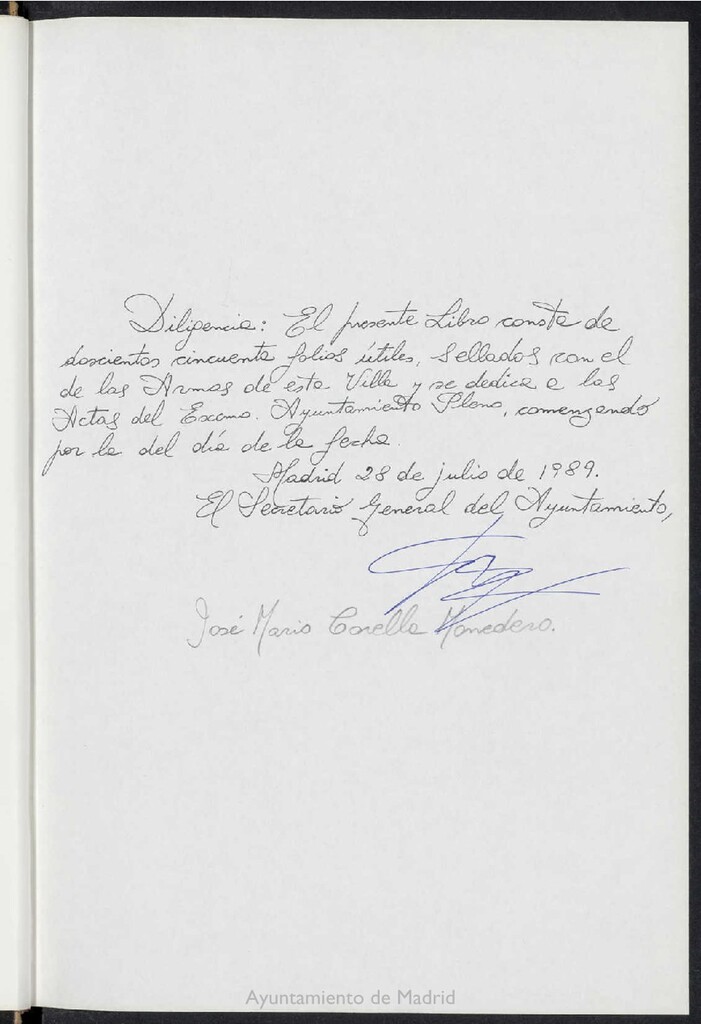 Diligencia: El presente Libro consta de
doscientos cincuenta folios útiles, sellados con el
de las Armas de esta Villa y se dedica a las
Actas del Excmo. Ayuntamiento Pleno, comenzando
por la del día de la fecha.
Madrid 28 de julio de 1989.
El Secretario General del Ayuntamiento,
José Mario Corella Monedero.
Ayuntamiento de Madrid